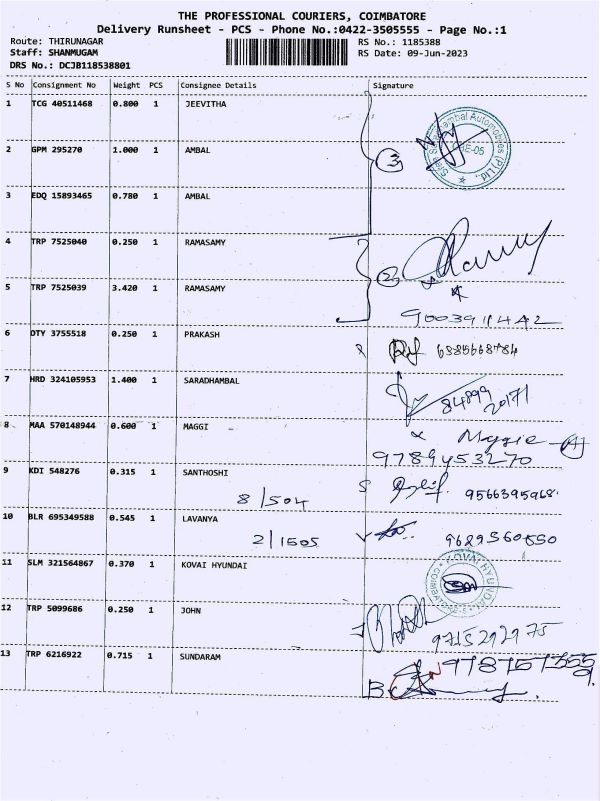 THE PROFESSIONAL COURIERS, COIMBATORE
Delivery Runsheet - PCS - Phone No.:0422-3505555 - Page No.:1
Route: THIRUNAGAR RS No.: 1185388
Staff: SHANMUGAM RS Date: 09-Jun-2023
DRS No.: DCJB118538801
S No Consignment No Weight PCS Consignee Details Signature
1 TCG 40511468 0.800 1 JEEVITHA
2 GPM 295270 1.000 1 AMBAL 3
3 EDQ 15893465 0.780 1 AMBAL
4 TRP 7525040 0.250 1 RAMASAMY
5 TRP 7525039 3.420 1 RAMASAMY 2
6 DTY 3755518 0.250 1 PRAKASH
7 HRD 324105953 1.400 1 SARADHAMBAL 84899
20171
8 MAA 570148944 0.600 1 MAGGI Maggie
9789453270
9 KDI 548276 0.315 1 SANTHOSHI
8/504 9566395968
10 BLR 695349588 0.545 1 LAVANYA
2/1605 9629560550
11 SLM 321564867 0.370 1 KOVAI HYUNDAI KOVAI HYUNDAI
12 TRP 5099686 0.250 1 JOHN
9715292975
13 TRP 6216922 0.715 1 SUNDARAM